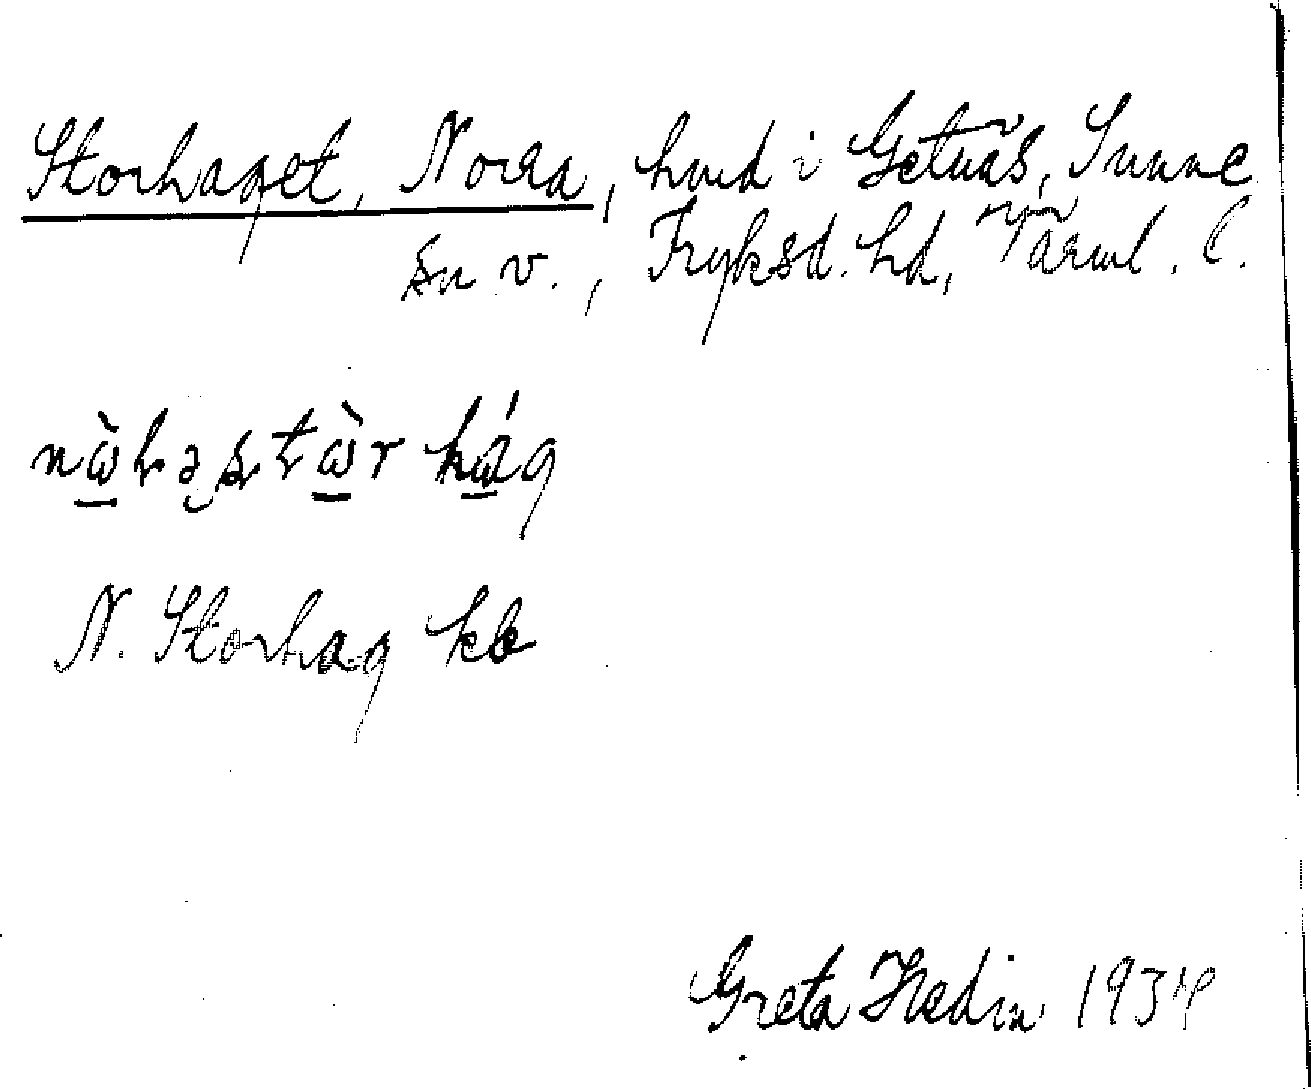 Storhaget, Norra, hmd i Getnäs, Sunne
sn v., Fryksd. hd, Värml. l.
N. Storhag kb
Greta Hedin 1934